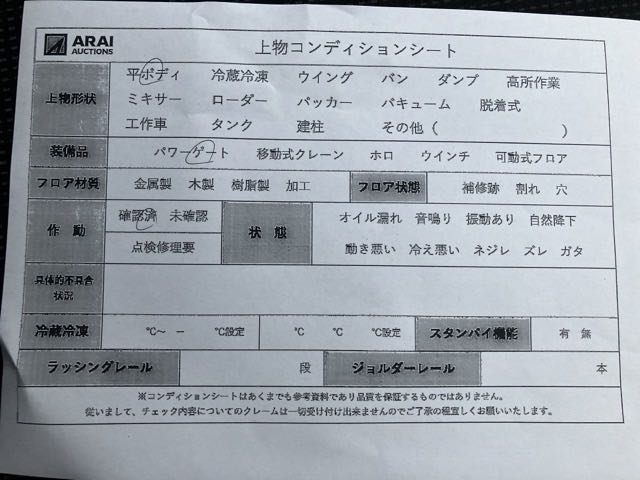 ARAI
AUCTIONS
上物コンディションシート
上物形状
平ボディ 冷蔵冷凍 ウイング バン ダンプ 高所作業
ミキサー ローダー パッカー バキューム 脱着式
工作車 タンク 建柱 その他( )
装備品 パワーゲート 移動式クレーン ホロ ウインチ 可動式フロア
フロア材質 金属製 木製 樹脂製 加工 フロア状態 補修跡 割れ 穴
作動 確認済 未確認 状態 オイル漏れ 音鳴り 振動あり 自然降下
点検修理要 動き悪い 冷え悪い ネジレ ズレ ガタ
具体的不具合
状況
冷蔵冷凍 ℃～ ー ℃設定 ℃ ℃ ℃設定 スタンバイ機能 有 無
ラッシングレール 段 ジョルダーレール 本
※コンディションシートはあくまでも参考資料であり品質を保証するものではありません。
従いまして、チェック内容についてのクレームは一切受け付け出来ませんのでご了承の程宜しくお願いいたします。